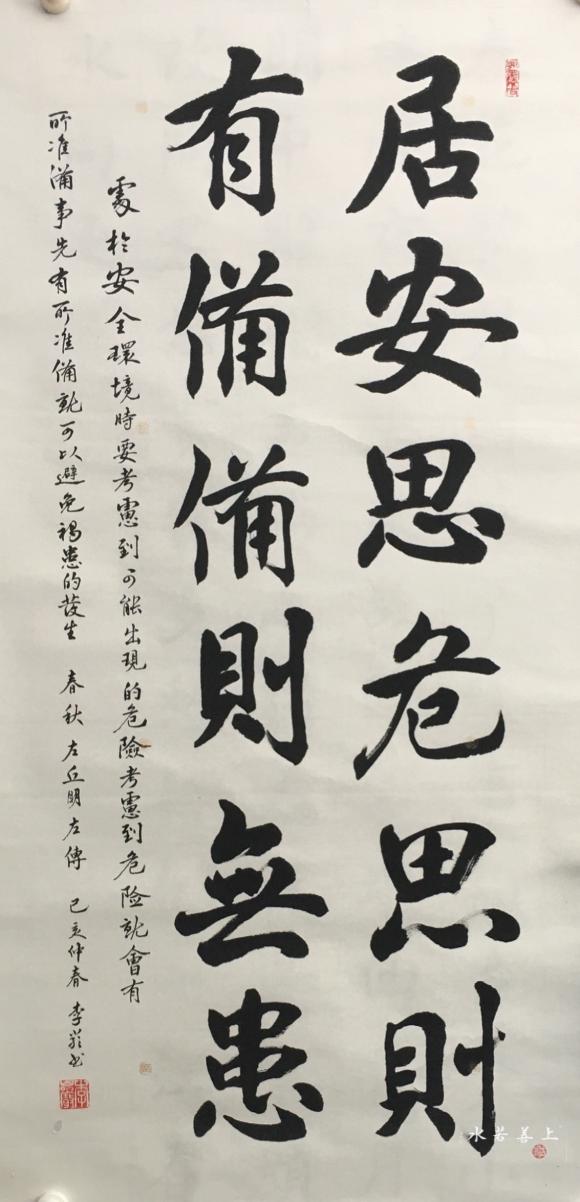 居安思危思則
有備備則無患
處於安全環境時要考慮到可能出現的危險考慮到危险就會有
所准備事先有所准備就可以避免禍患的發生 春秋 左丘明左傳 己亥仲春 李
上善若水